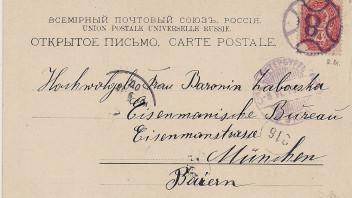 ВСЕМІРНЫЙ ПОЧТОВЫЙ СОЮЗЪ. РОССІЯ.
UNION POSTALE UNIVERSELLE RUSSIE.
ОТКРЫТОЕ ПИСЬМО. CARTE POSTALE.
8
Frau Baronin
Eisenmanische Bureau
Eisenmanstrasse
316
München
Baiern